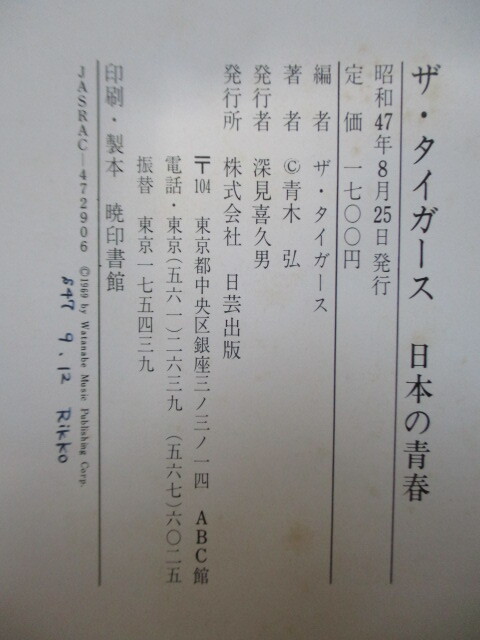 ザ・タイガース 日本の青春
昭和47年8月25日発行
定 価 一七〇〇円
編 者 ザ・タイガース
著 者 ©青木 弘
発行者 深見喜久男
発行所 株式会社 日芸出版
〒104 東京都中央区銀座三ノ三ノ一四 ABC館
電話・東京(五六一)二六三九 (五六七)六〇二五
振替 東京一七五四三九
印刷・製本 暁印書館
JASRAC—472906 ©1969 by Watanabe Music Publishing Corp.
S47 9.12 Rikko